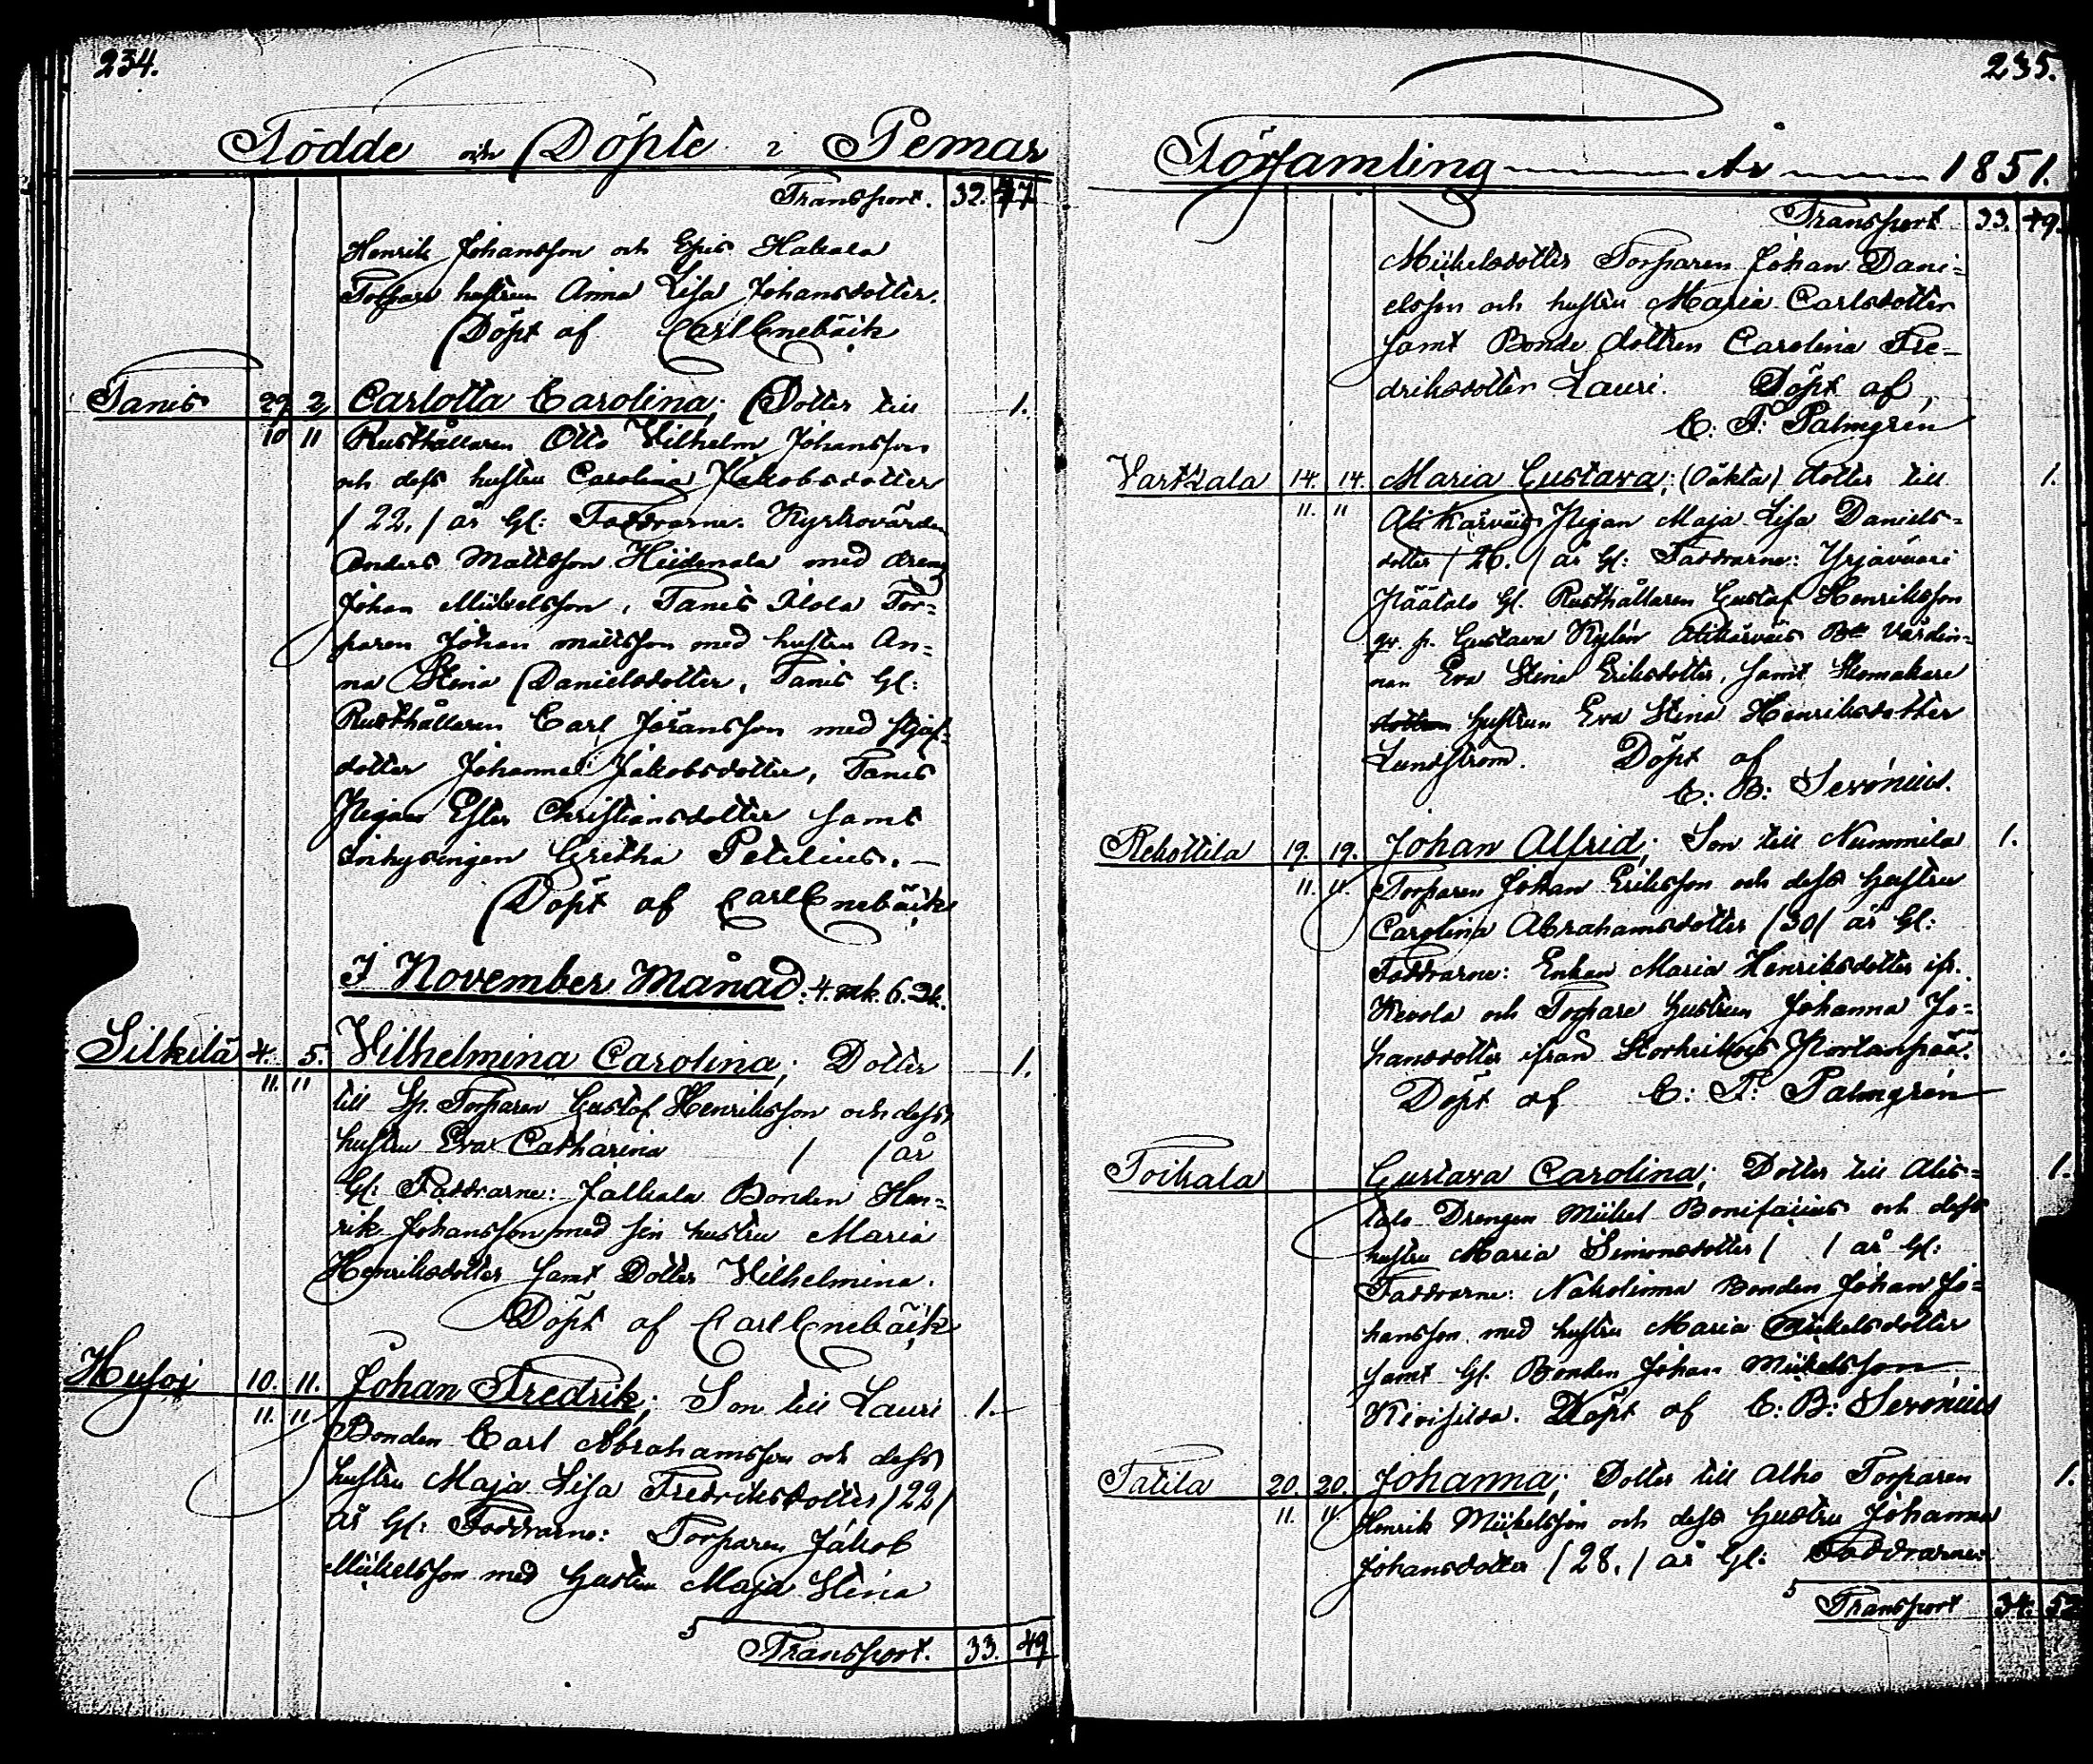 234.
Födde och Döpte i Pemar
Transport. 32. 47
Henrik Johansson och Epis Hakala
Torpare hustrun Anna Lisa Johansdotter.
Döpt af Carl Enebäck
Tanis 29 2 Carlotta Carolina; Dotter till 1.
10 11 Rusthållaren Otto Vilhelm Johansson
och dess hustru Carolina Jakobsdotter
/ 22. / år Gl: Faddrarne. Kyrkovärden
Anders Mattsson Hiidenala med dreng
Johan Mickelsson, Tanis Alola Tor=
paren Johan Mattsson med hustru An=
na Stina Danielsdotter, Tanis Gl:
Rusthållaren Carl Jöransson med stjuf=
dotter Johanna Jakobsdotter, Tanis
Pigan Ester Christiansdotter samt
inhysingen Gretha Petelius. —
Döpt af Carl Enebäck
I November Månad. 4. mk. 6. Qk.
Silkilä 4. 5. Vilhelmina Carolina; Dotter 1.
11. 11 till Sp. Torparen Gustaf Henriksson och dess
hustru Eva Catharina / / år
Gl: Faddrarne: Jalkala Bonden Hen=
rik Johansson med sin hustru Maria
Henriksdotter samt Dotter Vilhelmina.
Döpt af Carl Enebäck
Husoj 10. 11. Johan Fredrik; Son till Lauri 1.
11. 11 Bonden Carl Abrahamsson och dess
hustru Maja Lisa Fredriksdotter / 22 /
år Gl: Faddrarne: Torparen Jakob
Mickelsson med Hustru Maja Stina
5 Transport. 33. 49
235.
Församling År 1851.
Transport 33. 49.
Mickelsdotter Torparen Johan Dani=
elsson och hustru Maria Carlsdotter
samt Bonde dottren Carolina Fre=
driksdotter Lauri. Döpt af
C. F. Palmgren
Vartsala 14. 14. Maria Gustava; (Oäkta) dotter till 1.
11. 11 Alikärväis Pigan Maja Lisa Daniels=
dotter / 26. / år Gl: Faddrarne: Yrjävuori
Päätalo Gl. Rusthållaren Gustaf Henriksson
Gustava Kylén Alikärväis Värdin=
nan Eva Stina Eriksdotter, samt Skomakare
hustrun Eva Stina Henriksdotter
Lundström. Döpt af
C. B. Seronius.
Rekottila 19. 19. Johan Alfrid; Son till Nummila 1.
11. 11. Torparen Johan Eriksson och dess Hustru
Carolina Abrahamsdotter / 30 / år Gl:
Faddrarne: Enkan Maria Henriksdotter ifr.
Kevola och Torpare Hustrun Johanna Jo=
hansdotter ifrån Storheikois Portanpää.
Döpt af C. F. Palmgren
Toikala Gustava Carolina; Dotter till Alis= 1.
talo Drengen Mickel Bonifacius och dess
hustru Maria Simonsdotter / / år Gl:
Faddrarne: Nakolinna Bonden Johan Jo=
hansson med hustru Maria Mickelsdotter
samt Gl. Bonden Johan Mickelsson
Kivisilda. Döpt af C. B. Seronius
Tatila 20. 20. Johanna; Dotter till Alho Torparen 1.
11. 11. Henrik Mickelsson och dess Hustru Johanna
Johansdotter / 28. / år Gl: Faddrarne:
5 Transport 34. 52